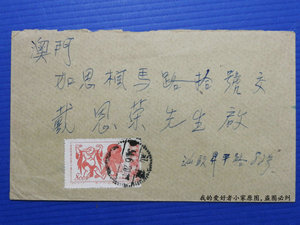 澳門
加思欄馬路拾號交
戴恩榮先生啟
汕頭
我的爱好者小家原图,盗图必纠